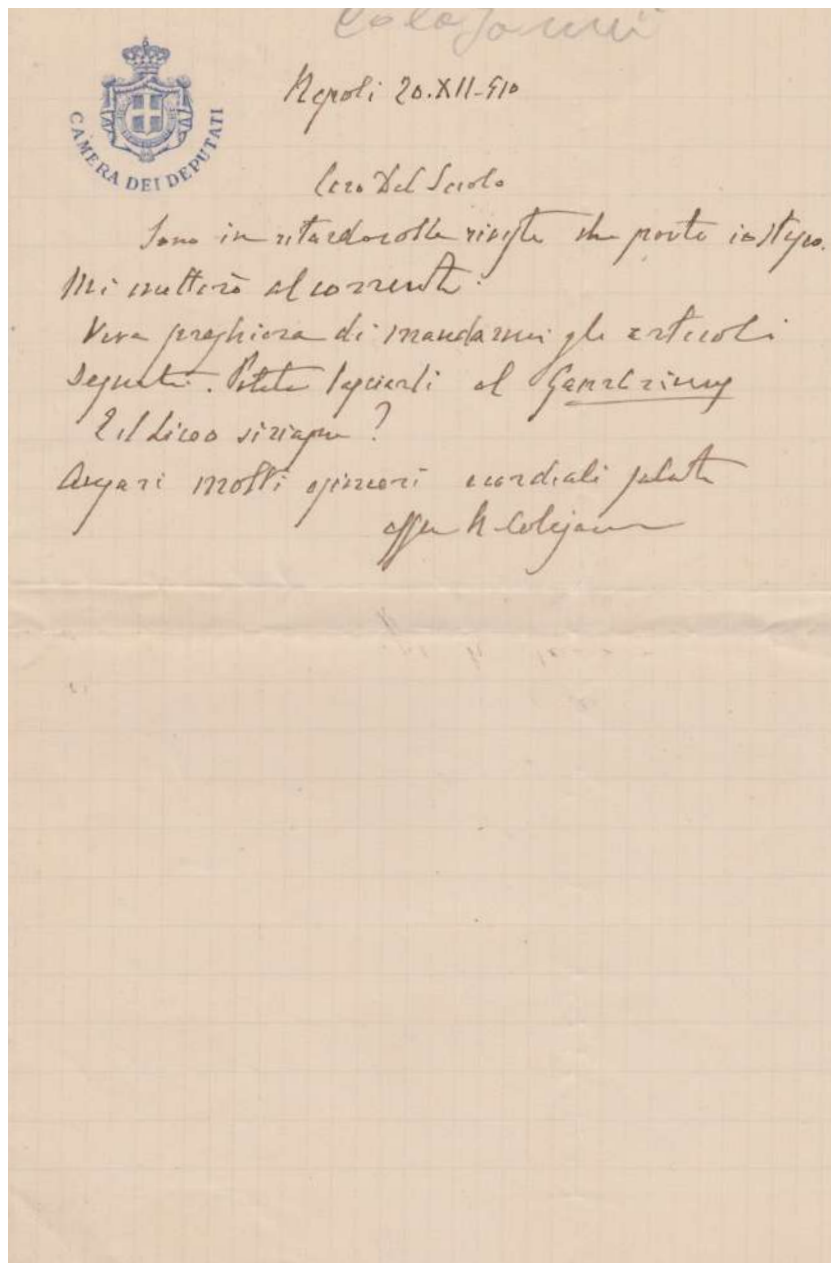 Colajanni
CAMERA DEI DEPUTATI
Napoli 20.XII-910
Caro Del Secolo
Sono in ritardo colle riviste che porto io stesso.
Mi metterò al corrente.
Viva preghiera di mandarmi gli articoli
segnati. Potete lasciarli al
E il
Auguri molti e sinceri e cordiali saluti
N Colajanni